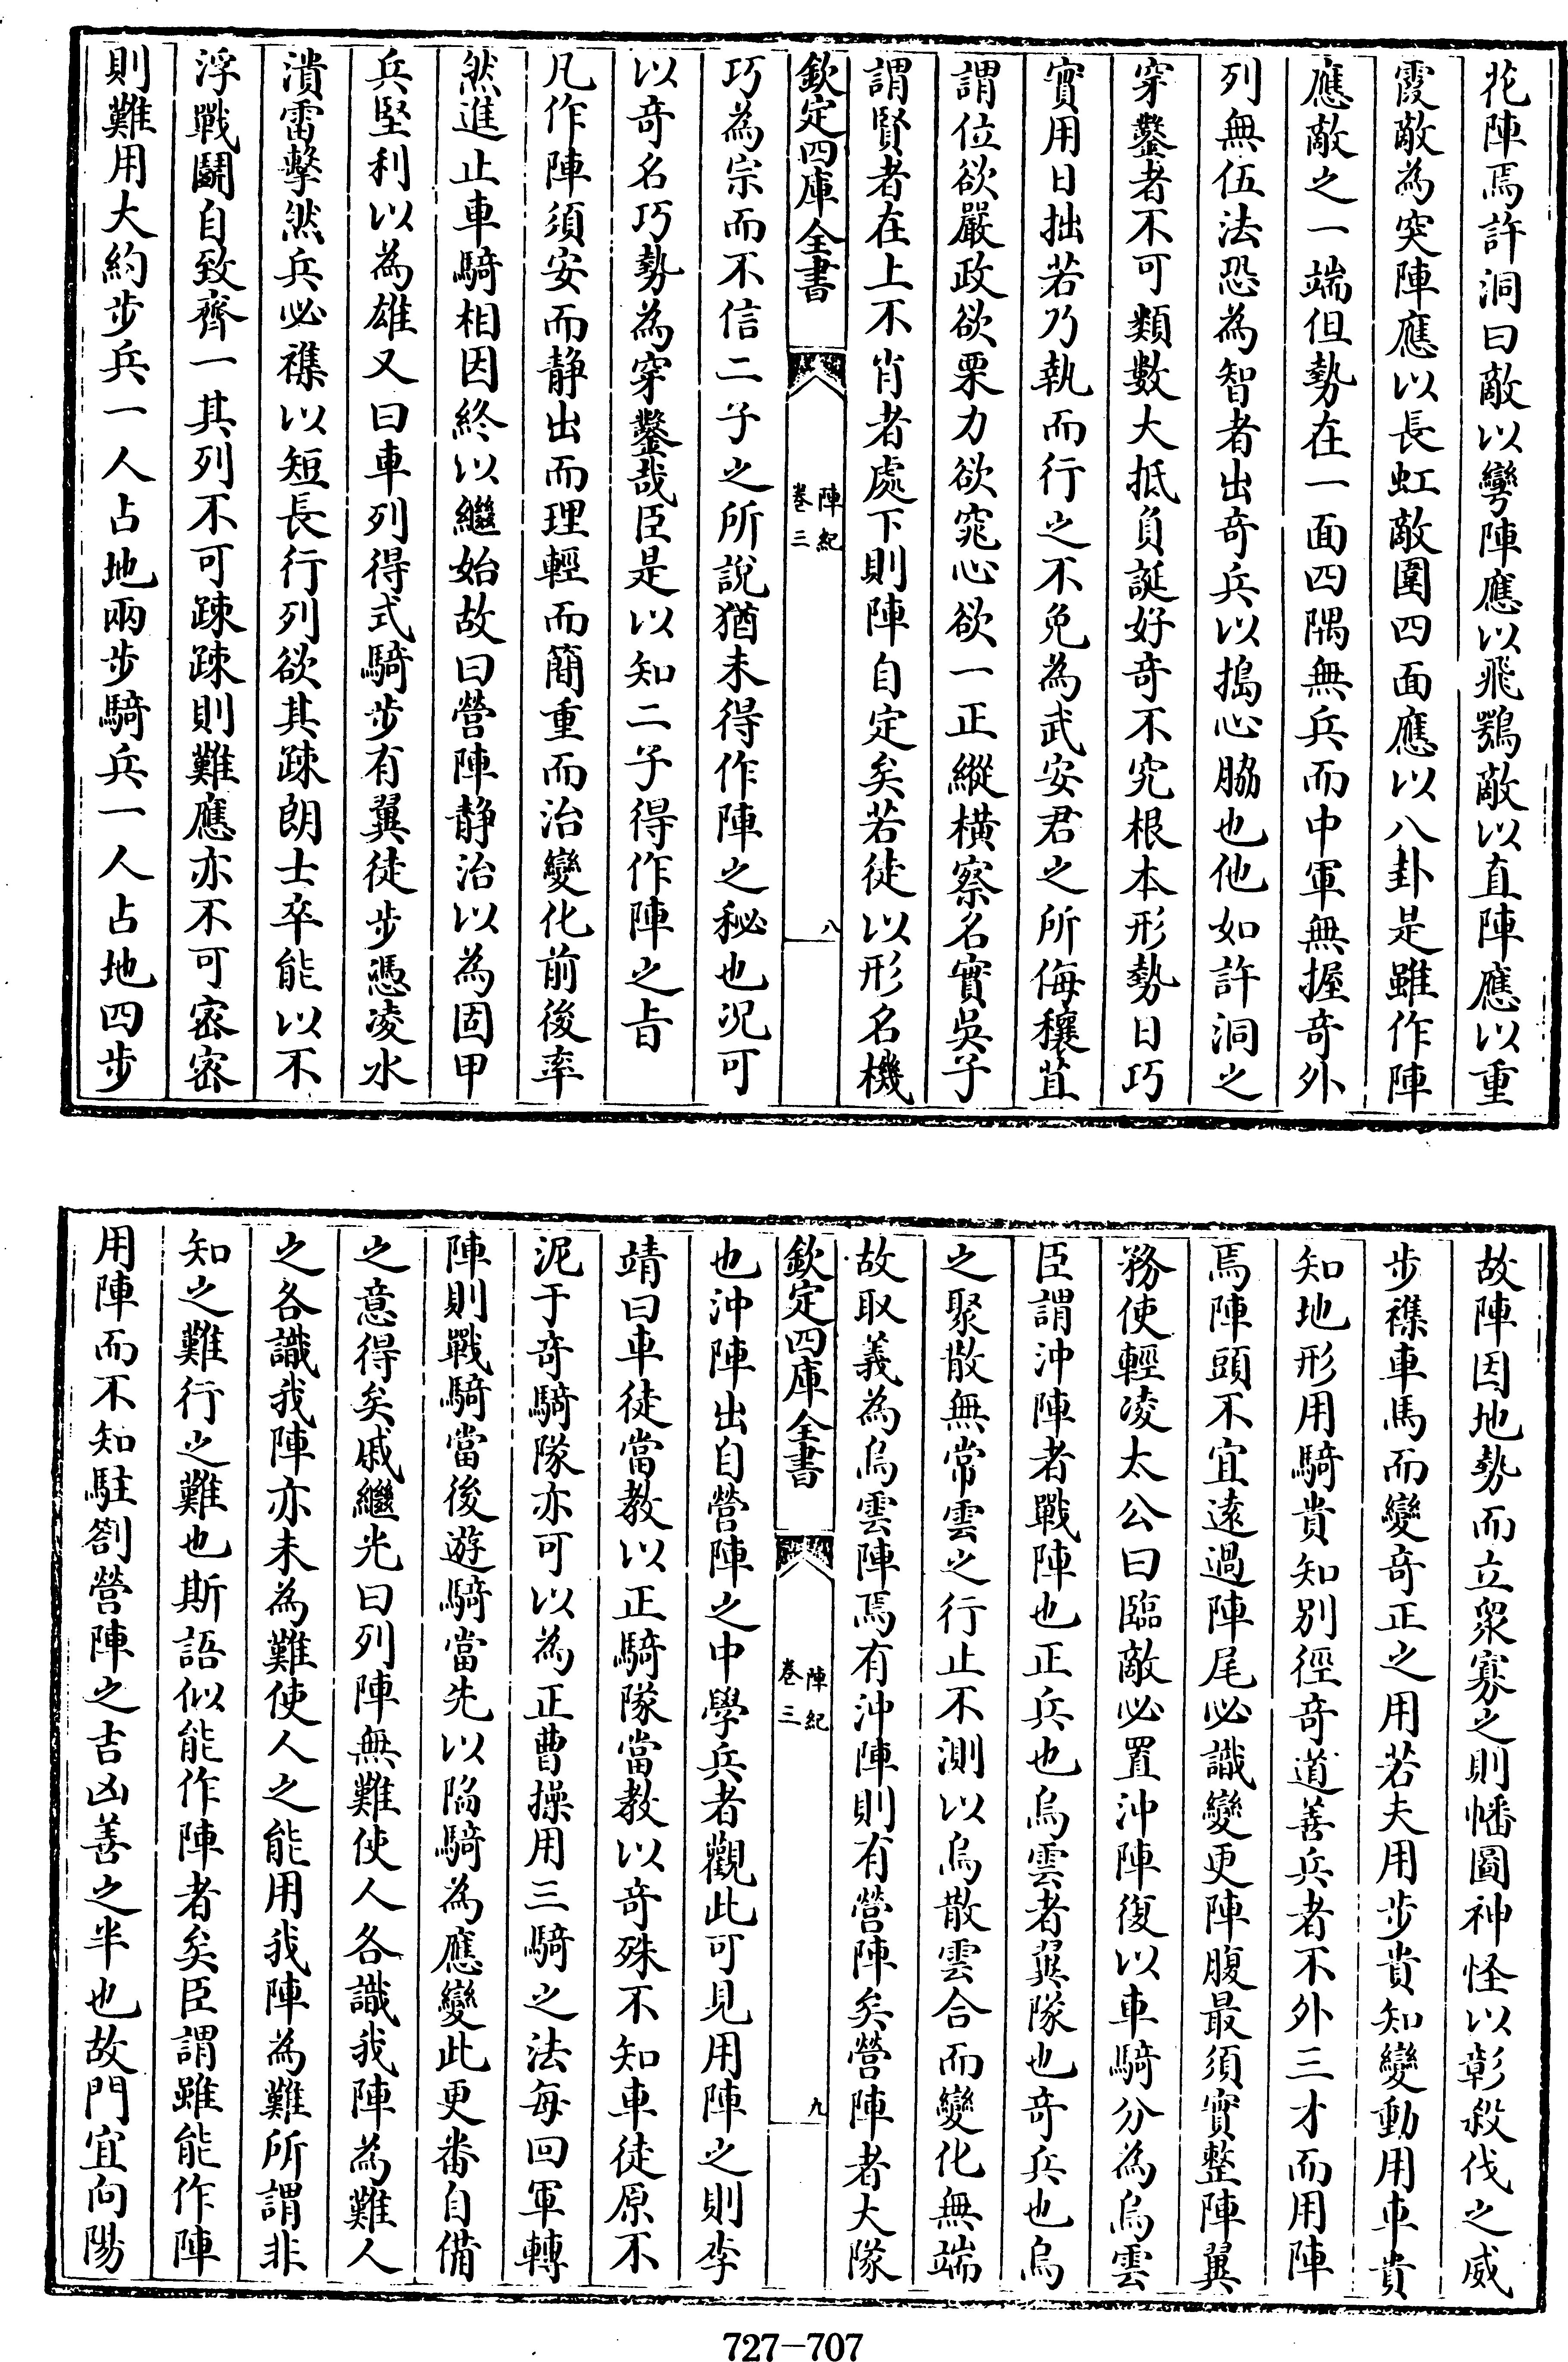 花陣焉許洞曰敵以彎陣應以飛鶚敵以直陣應以重
霞敵為突陣應以長虹敵圍四面應以八卦是雖作陣
應敵之一端但勢在一面四隅無兵而中軍無握奇外
列無伍法恐為智者出奇兵以搗心脇也他如許洞之
穿鑿者不可類數大抵負誕好奇不究根本形勢日巧
實用日拙若乃執而行之不免為武安君之所侮穰苴
謂位欲嚴政欲栗力欲窕心欲一正縱橫察名實吳子
謂賢者在上不肖者處下則陣自定矣若徒以形名機
欽定四庫全書
陣紀
卷三
八
巧為宗而不信二子之所說猶未得作陣之秘也況可
以奇名巧勢為穿鑿哉臣是以知二子得作陣之旨
凡作陣須安而静出而理輕而簡重而治變化前後率
然進止車騎相因終以繼始故曰營陣静治以為固甲
兵堅利以為雄又曰車列得式騎步有翼徒步憑凌水
潰雷擊然兵必襍以短長行列欲其踈朗士卒能以不
浮戰鬭自致齊一其列不可踈踈則難應亦不可宻宻
則難用大約步兵一人占地兩步騎兵一人占地四步
故陣因地勢而立衆寡之則幡圖神怪以彰殺伐之威
步襍車馬而變奇正之用若夫用步貴知變動用車貴
知地形用騎貴知别徑奇道善兵者不外三才而用陣
焉陣頭不宜遠過陣尾必識變更陣腹最須實整陣翼
務使輕凌太公曰臨敵必置沖陣復以車騎分為烏雲
臣謂沖陣者戰陣也正兵也烏雲者翼隊也奇兵也烏
之聚散無常雲之行止不測以烏散雲合而變化無端
故取義為烏雲陣焉有沖陣則有營陣矣營陣者大隊
欽定四庫全書
陣紀
卷三
九
也沖陣出自營陣之中學兵者觀此可見用陣之則李
靖曰車徒當教以正騎隊當教以奇殊不知車徒原不
泥于奇騎隊亦可以為正曹操用三騎之法每回軍轉
陣則戰騎當後遊騎當先以陷騎為應變此更畨自備
之意得矣戚繼光曰列陣無難使人各識我陣為難人
之各識我陣亦未為難使人之能用我陣為難所謂非
知之難行之難也斯語似能作陣者矣臣謂雖能作陣
用陣而不知駐劄營陣之吉凶善之半也故門宜向陽
727-707